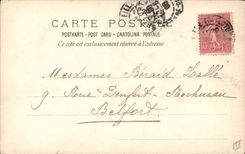 CARTE POSTALE
POSTKARTE - POST CARD - CARTOLINA POSTALE
Ce côté est exclusivement réservé à l'adresse.
Mesdames Bérard Lallé
9, Rue Denfert-Rochereau
Belfort